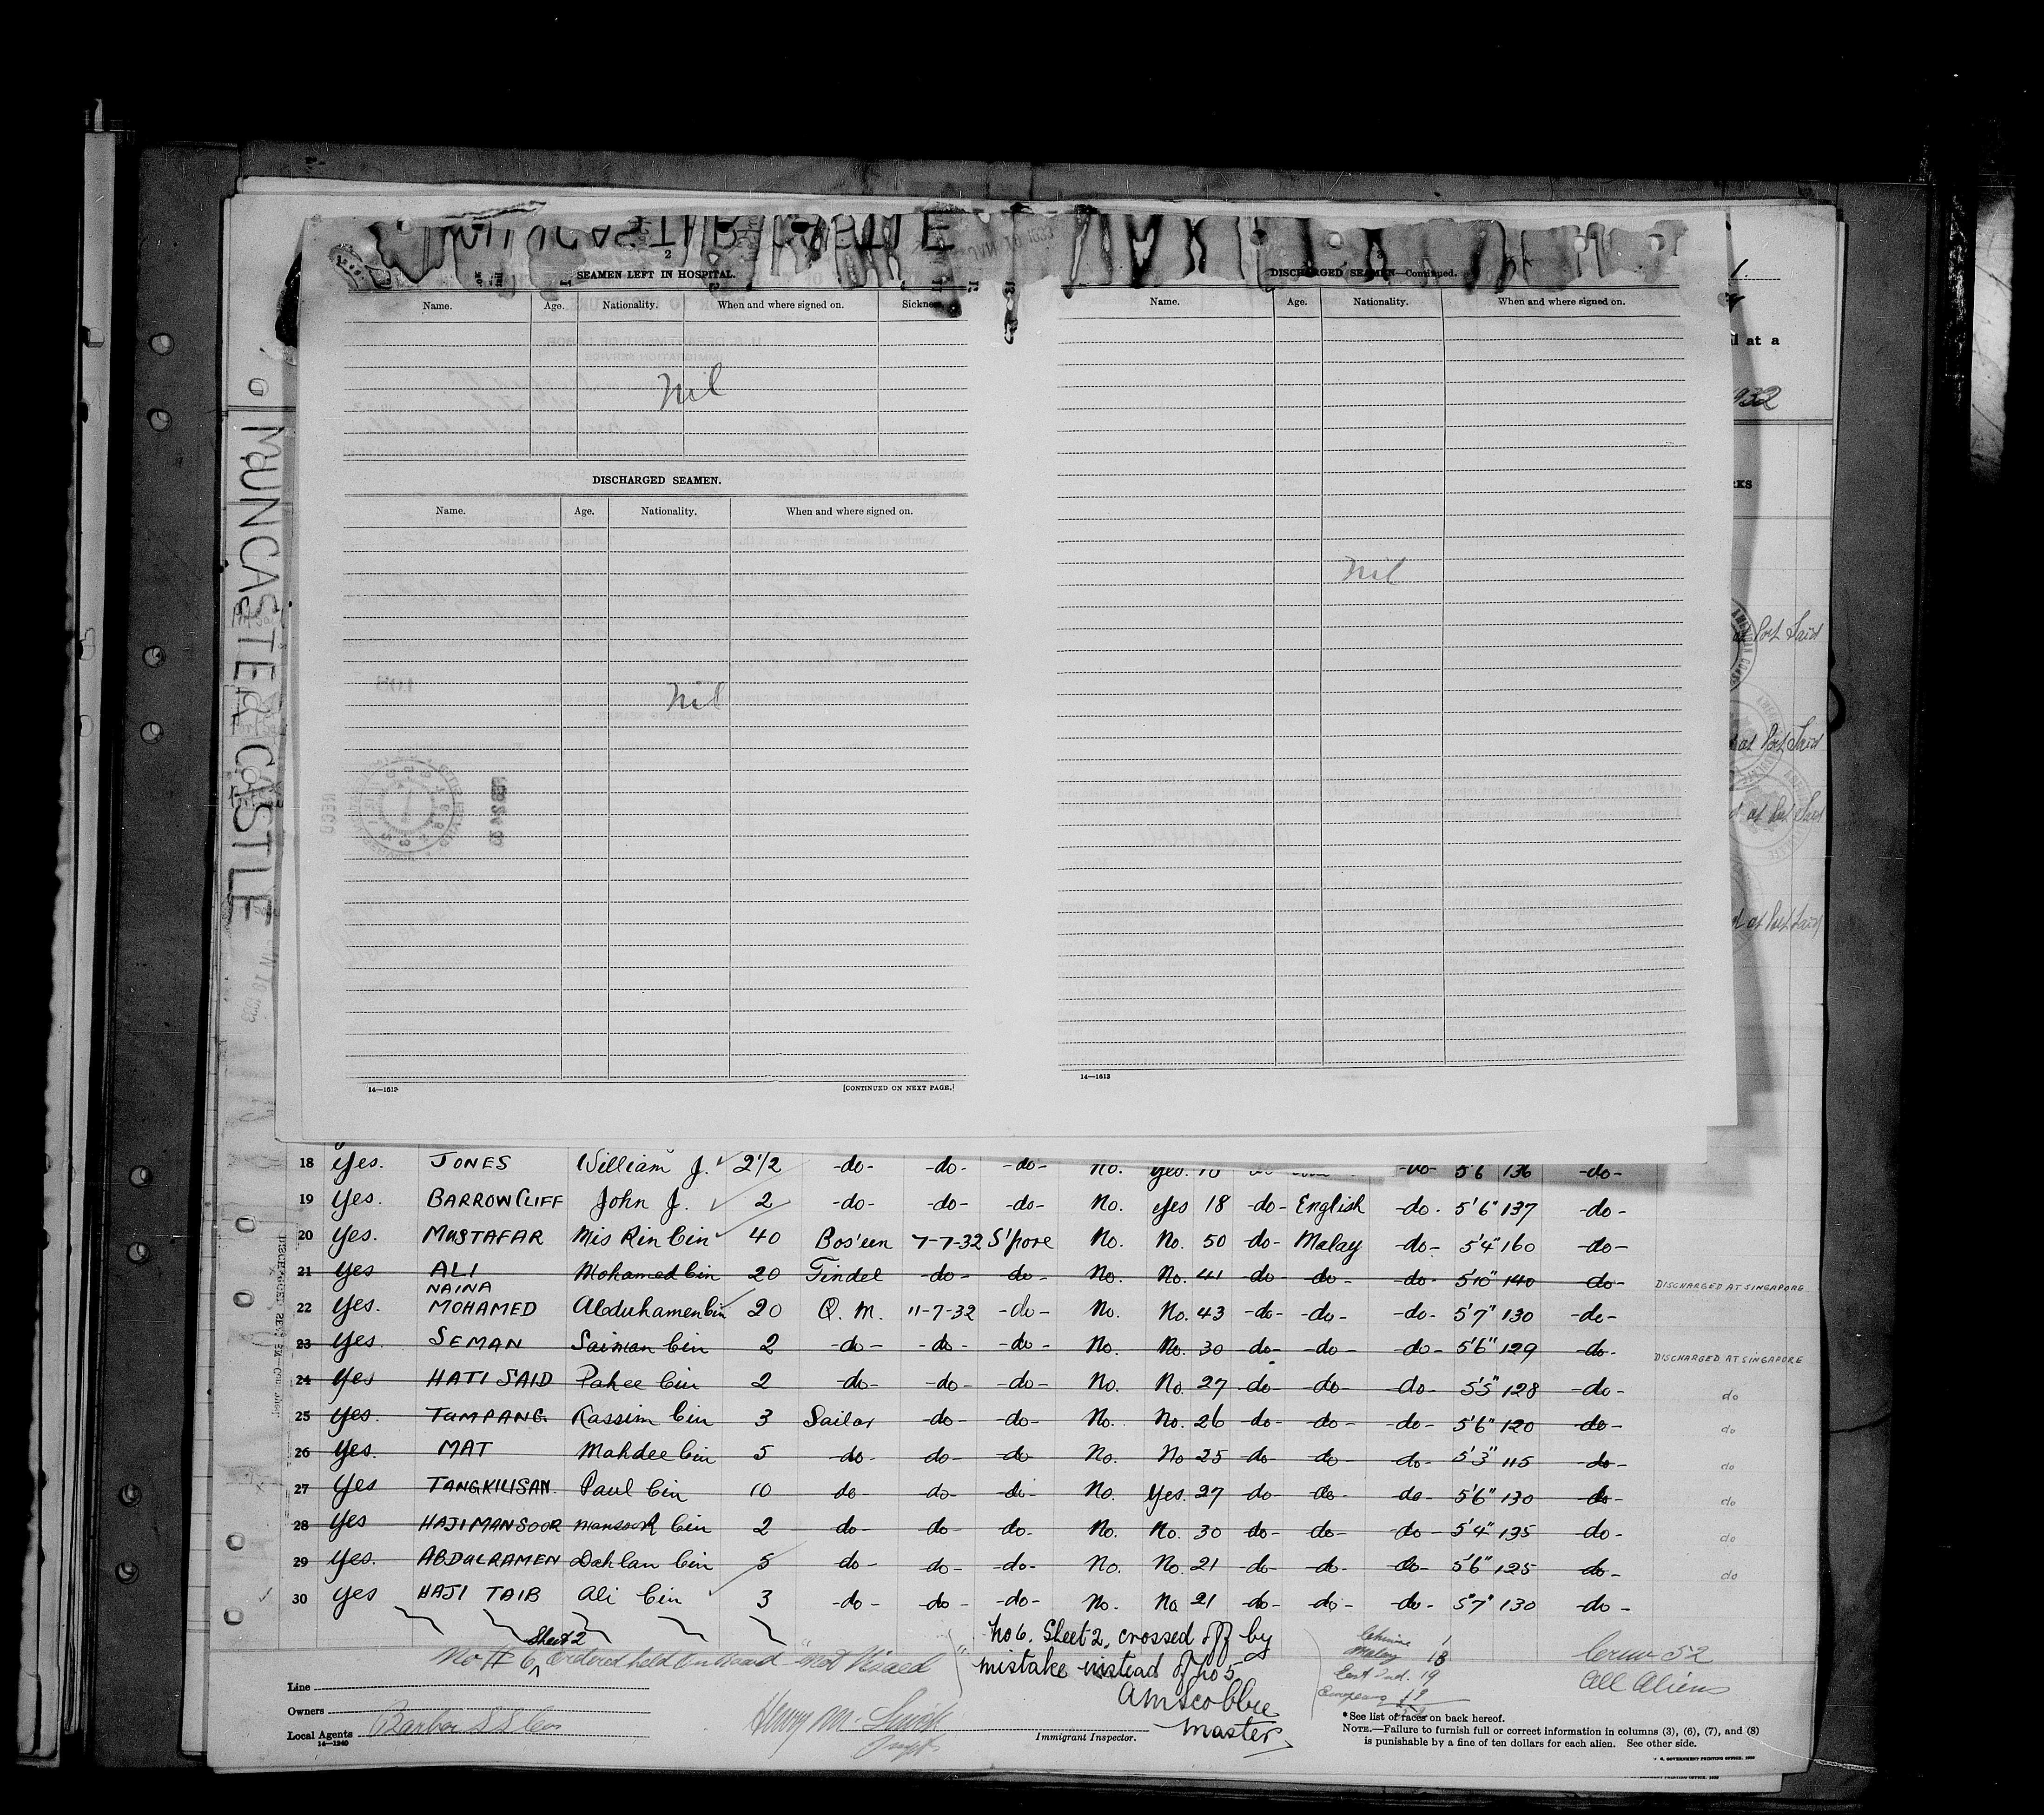 MUNCASTER CASTLE
2
SEAMEN LEFT IN HOSPITAL.
Name. Age. Nationality. When and where signed on.
Nil
DISCHARGED SEAMEN.
Name. Age. Nationality. When and where signed on.
Nil
14—1613
[CONTINUED ON NEXT PAGE.]
3
DISCHARGED SEAMEN—Continued.
Name. Age. Nationality. When and where signed on.
Nil
14—1613
1
d at a
1932
RKS
at Port Said
at Port Said
at Port Said
at Port Said
18 Yes. JONES William J. 2 1/2 -do- -do- -do- No. Yes. -do- 5'6 136 -do-
19 Yes. BARROWCLIFF John J. 2 -do- -do- -do- No. Yes 18 -do- English -do- 5'6" 137 -do-
20 Yes. MUSTAFAR Mis Rin bin 40 Bos'un 7-7-32 S'pore No. No. 50 -do- Malay -do- 5'4" 160 -do-
21 Yes ALI Mohamed bin 20 Tindel -do- -do- No. No. 41 -do- -do- -do- 5'10" 140 -do- DISCHARGED AT SINGAPORE
22 Yes. NAINA MOHAMED Abduhamen bin 20 Q. M. 11-7-32 -do- No. No. 43 -do- -do- -do- 5'7" 130 -do-
23 Yes. SEMAN Saiman bin 2 -do- -do- -do- No. No. 30 -do- -do- -do- 5'6" 129 -do- DISCHARGED AT SINGAPORE
24 Yes HATI SAID Pahee bin 2 -do- -do- -do- No. No. 27 -do- -do- -do- 5'5" 128 -do- do
25 Yes. TUMPANG Kassim bin 3 Sailor -do- -do- No. No. 26 -do- -do- -do- 5'6" 120 -do- do
26 Yes. MAT Mahdee bin 5 -do- -do- -do No. No 25 -do- -do- -do- 5'3" 115 -do- do
27 Yes TANGKILISAN. Paul bin 10 do -do- -do- No. Yes. 27 -do- -do- -do- 5'6" 130 -do- do
28 Yes HAJI MANSOOR Mansoor bin 2 -do- -do- -do- No. No. 30 -do- -do- -do- 5'4" 135 -do- do
29 Yes. ABDULRAMEN Dahlan bin 5 -do- -do- -do- No. No. 21 -do- -do- -do- 5'6" 125 -do- do
30 Yes HAJI TAIB Ali bin 3 -do- -do- -do- No. No 21 -do- -do- -do- 5'7" 130 -do-
Sheet 2
No # 6 ordered held on board "not Visaed"
"No 6. Sheet 2, crossed off by
mistake instead of No 5
A M Scobbie
Master
Chinese 1
Malay 13
East Ind. 19
Europeans 19
52
Crew 52
All Aliens
Line
Owners
Local Agents Barber S S Co
14—1240
Henry M.
Inspt.
Immigrant Inspector.
*See list of races on back hereof.
NOTE.—Failure to furnish full or correct information in columns (3), (6), (7), and (8)
is punishable by a fine of ten dollars for each alien. See other side.